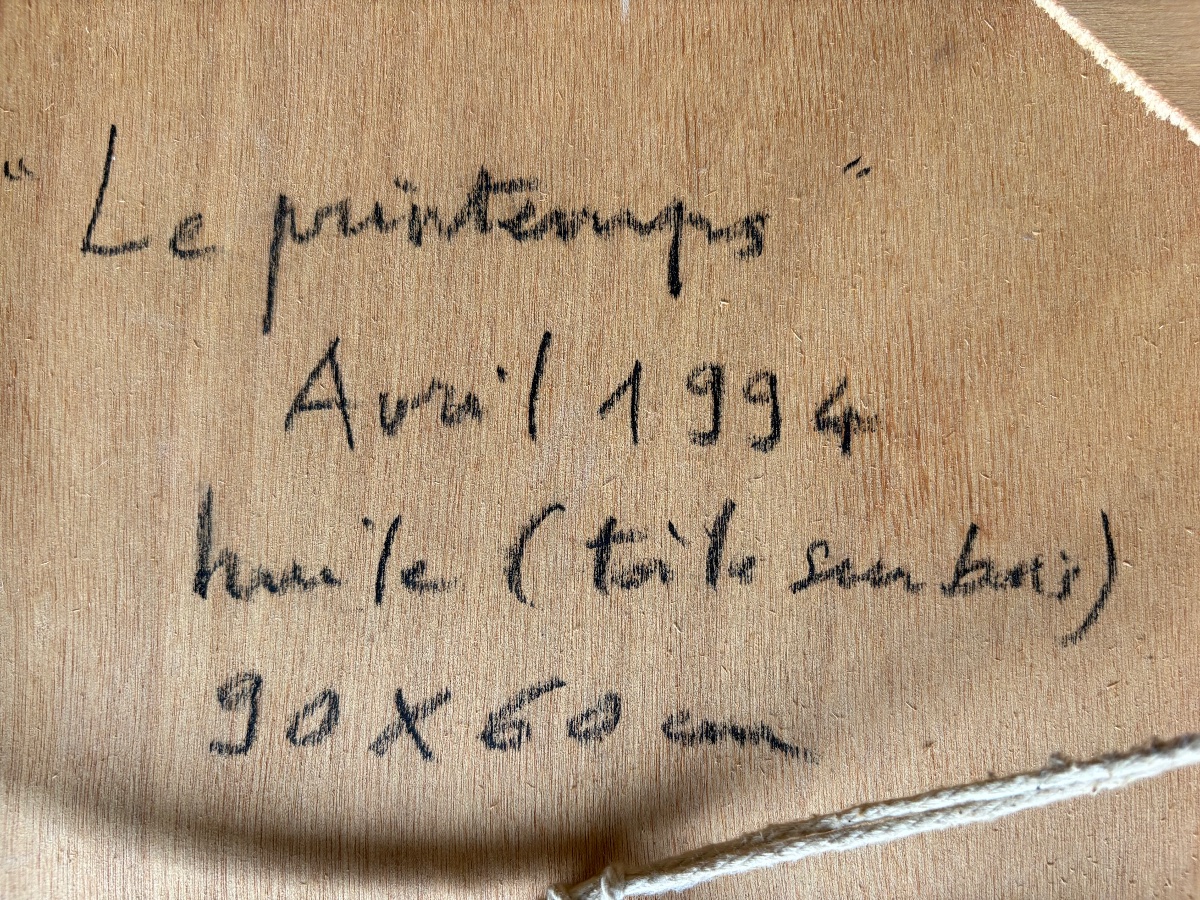 "Le printemps"
Avril 1994
huile (toile sur bois)
90 x 60 cm